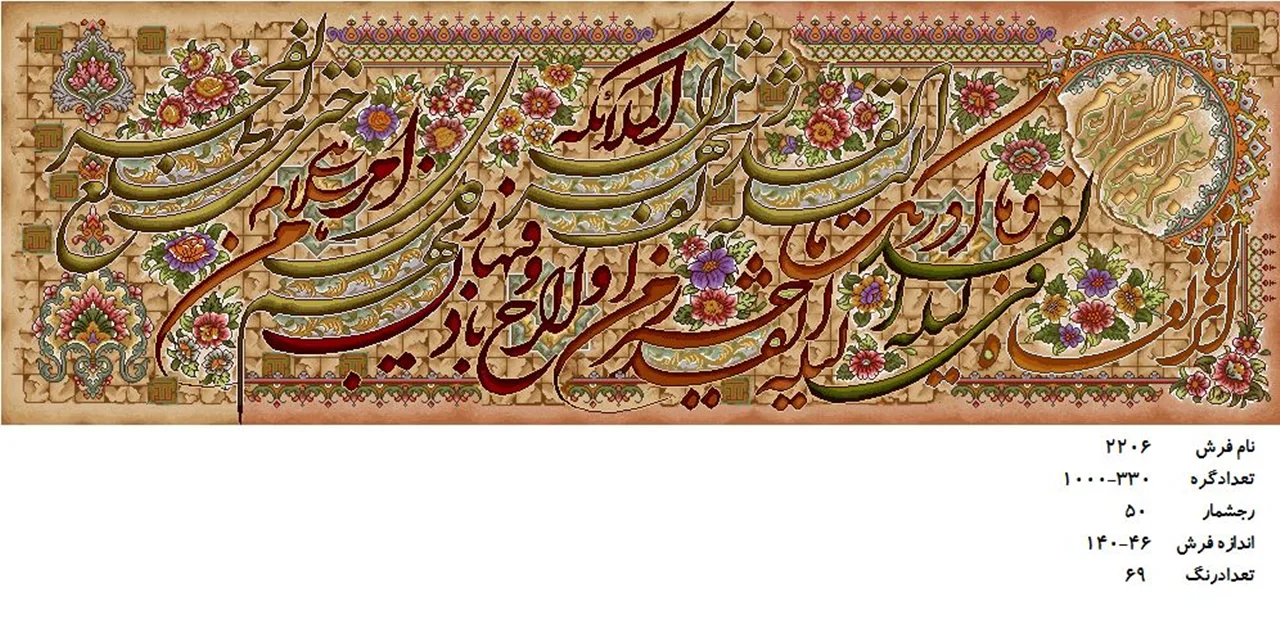 بسم الله الرحمن الرحیم
انا انزلناه فی لیله القدر
و ما ادریک ما لیله القدر
لیله القدر خیر من الف شهر
تنزل الملائکه و الروح فیها باذن ربهم من کل امر
سلام هی حتی مطلع الفجر
نام فرش ۲۲۰۶
تعدادگره ۱۰۰۰-۳۳۰
رجشمار ۵۰
اندازه فرش ۱۴۰-۴۶
تعدادرنگ ۶۹